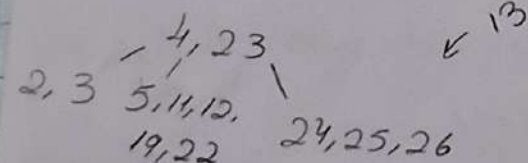 13
4, 23
2, 3 5, 11, 12,
19, 22 24, 25, 26